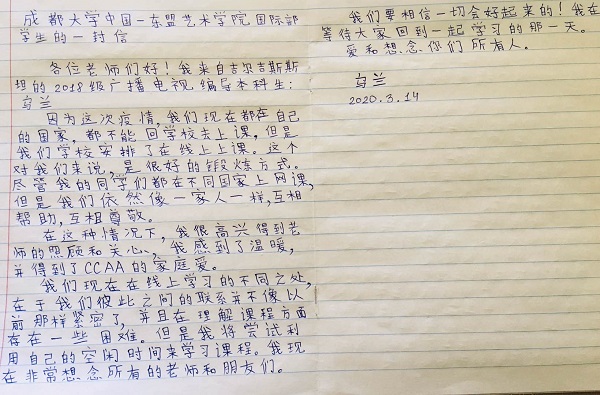 成都大学中国－东盟艺术学院国际部
学生的一封信
各位老师们好！我来自吉尔吉斯斯
坦的2018级广播电视编导本科生：
乌兰
因为这次疫情，我们现在都在自己
的国家，都不能回学校去上课，但是
我们学校安排了在线上上课。这个
对我们来说，是很好的锻炼方式。
尽管我的同学们都在不同国家上网课，
但是我们依然像一家人一样，互相
帮助，互相尊敬。
在这种情况下，我很高兴得到老
师的照顾和关心，我感到了温暖，
并得到了CCAA的家庭爱。
我们现在在线上学习的不同之处，
在于我们彼此之间的联系并不像以
前那样紧密了，并且在理解课程方面
存在一些困难。但是我将尝试利
用自己的空闲时间来学习课程。我现
在非常想念所有的老师和朋友们。
我们要相信一切会好起来的！我在
等待大家回到一起学习的那一天。
爱和想念你们所有人。
乌兰
2020.3.14